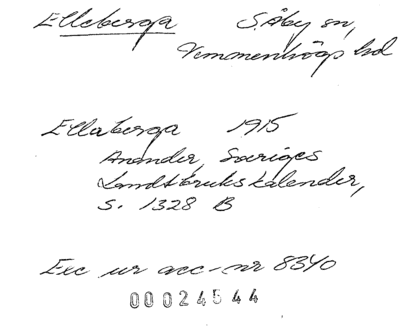 Elleberga S. Åby sn,
Vemmenhögs hd
Ellaberga 1915
Arander, Sveriges
Landtbrukskalender,
s. 1328 B
Exc ur acc-nr 8340
00024544